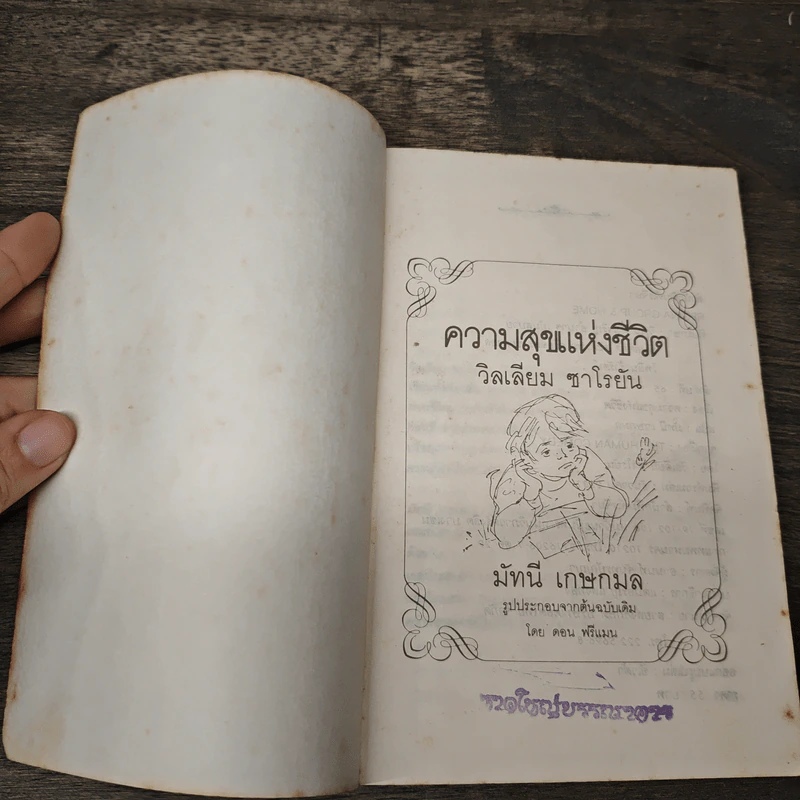 ความสุขแห่งชีวิต
วิลเลียม ซาโรยัน
มัทนี เกษกมล
รูปประกอบจากต้นฉบับเดิม
โดย ดอน ฟรีแมน